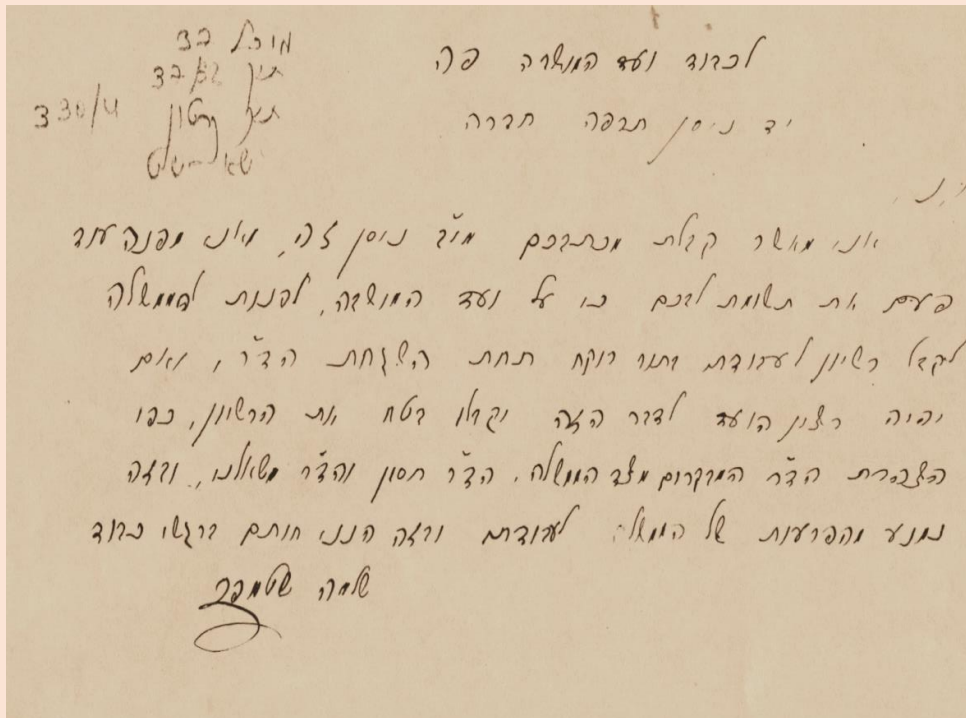 מיכל 32
תיק 32/52
תיק 330/4
לכבוד ועד המושבה פה
יד ניסן תרפה חדרה
א.נ.
אני מאשר קבלת מכתבכם מי"ב ניסן זה, ואני מפנה עוד
פעם את תשומת לבכם כי על ועד המושבה, לפנות לממשלה
לקבל רשיון לעבודתי בתור רוקח תחת השגחת הד"ר, ואם
יהיה רצון הועד לדבר הזה יקבלו בטח את הרשיון, כפי
הצהרת הד"ר המבקרים מצד הממשלה. הד"ר חסון והד"ר משאלי, ובזה
נמנע מהפרעות של הממשלה לעבודתי ובזה הנני חותם ברגשי כבוד
שלמה שטמפר